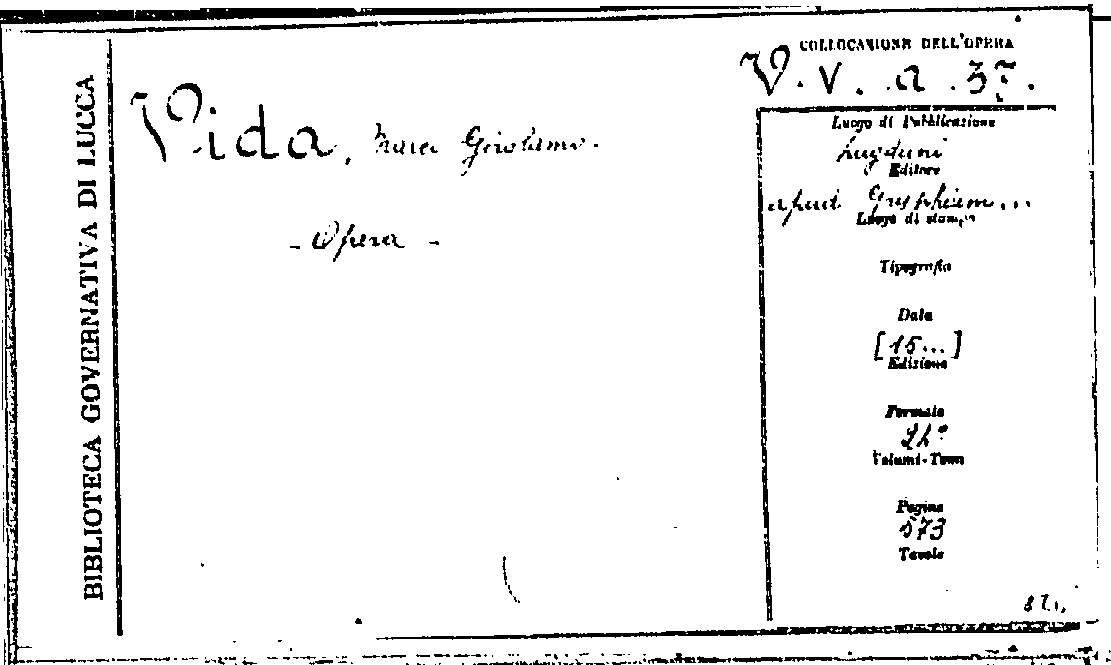 BIBLIOTECA GOVERNATIVA DI LUCCA
Vida, Marco Girolamo.
- Opera -
COLLOCAZIONE DELL'OPERA
V. V. a. 37.
Luogo di Pubblicazione
Lugduni
Editore
apud Gryphium...
Luogo di stampa
Tipografia
Data
[15...]
Edizione
Formato
24°
Volumi-Tomi
Pagine
573
Tavole